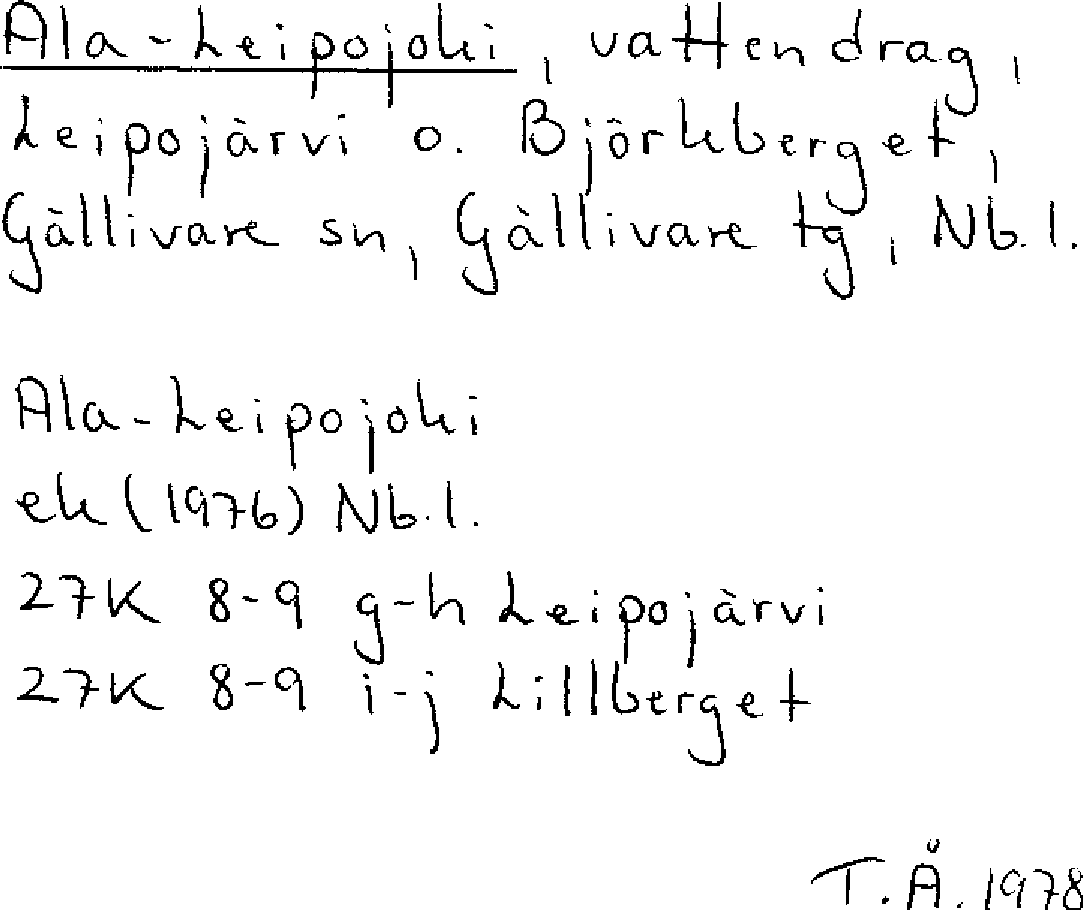 Ala-Leipojoki, vattendrag,
Leipojärvi o. Björkberget,
Gällivare sn, Gällivare tg, Nb.l.
Ala-Leipojoki
ek (1976) Nb.l.
27K 8-9 g-h Leipojärvi
27K 8-9 i-j Lillberget
T.Å. 1978